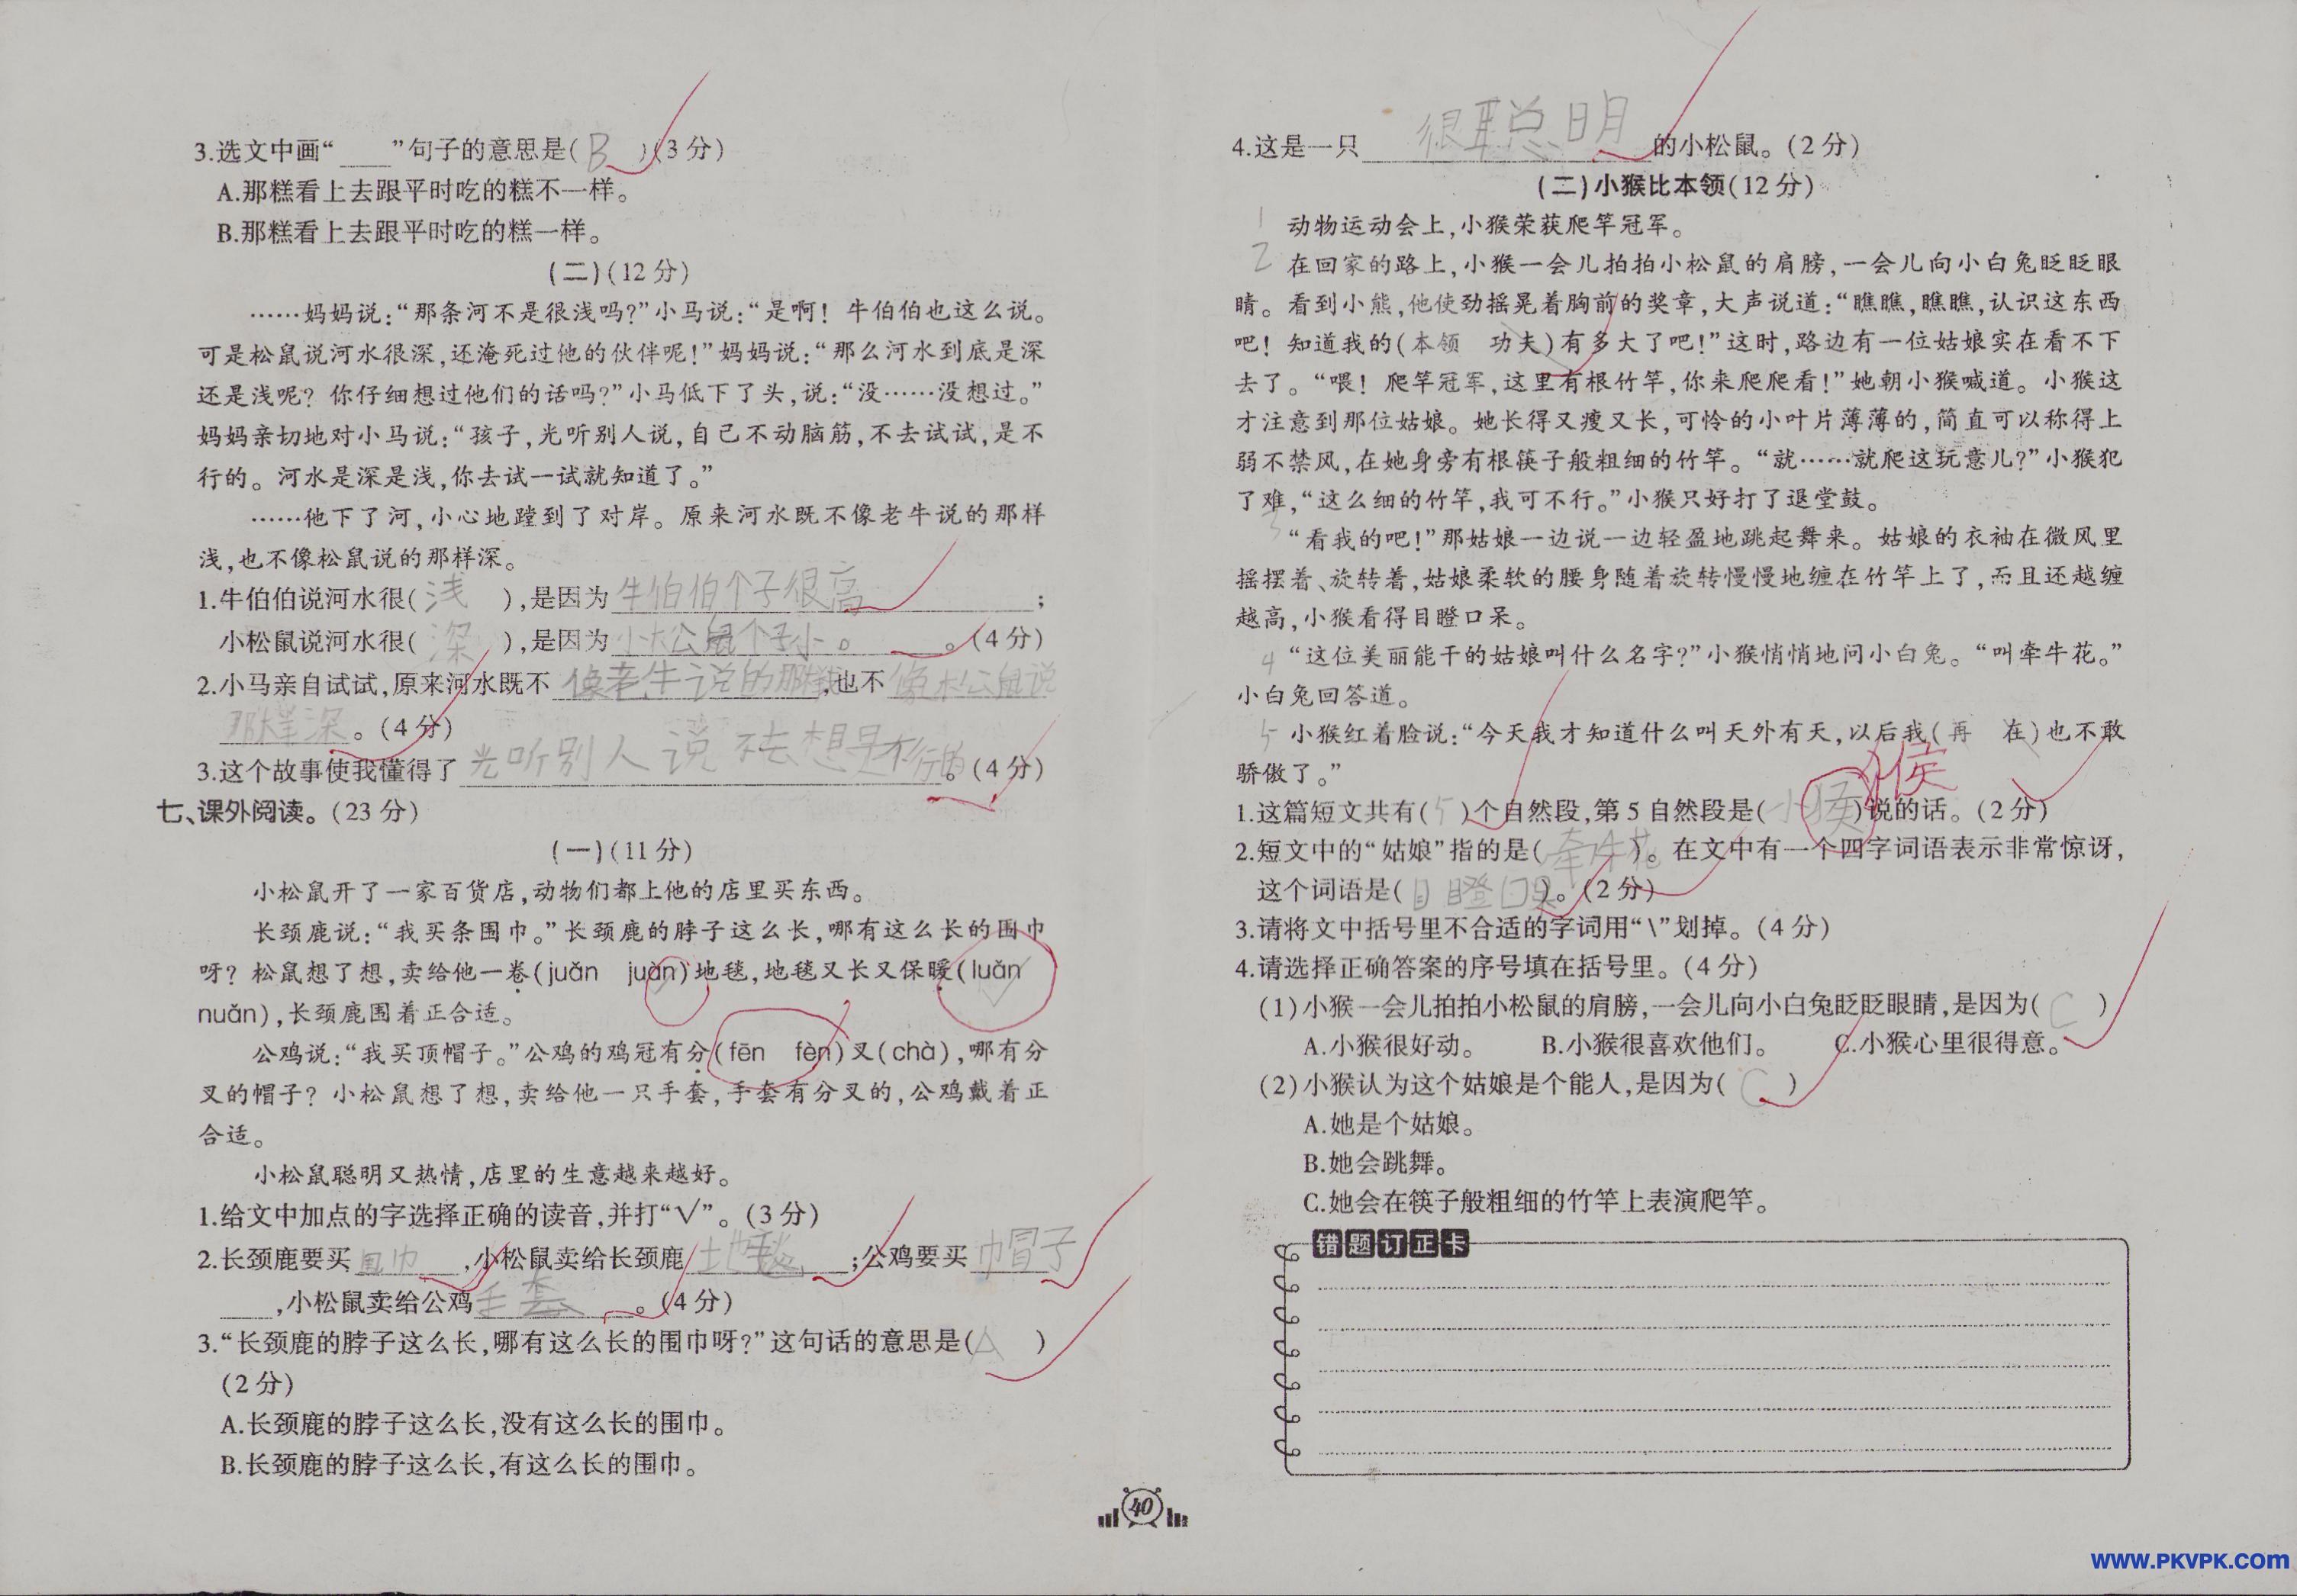 3.选文中画“____”句子的意思是( B )(3分)
A.那糕看上去跟平时吃的糕不一样。
B.那糕看上去跟平时吃的糕一样。
(二)(12分)
……妈妈说:“那条河不是很浅吗?”小马说:“是啊!牛伯伯也这么说。
可是松鼠说河水很深,还淹死过他的伙伴呢!”妈妈说:“那么河水到底是深
还是浅呢?你仔细想过他们的话吗?”小马低下了头,说:“没……没想过。”
妈妈亲切地对小马说:“孩子,光听别人说,自己不动脑筋,不去试试,是不
行的。河水是深是浅,你去试一试就知道了。”
……他下了河,小心地蹚到了对岸。原来河水既不像老牛说的那样
浅,也不像松鼠说的那样深。
1.牛伯伯说河水很( 浅 ),是因为牛伯伯个子很高;
小松鼠说河水很( 深 ),是因为小松鼠个子小。。(4分)
2.小马亲自试试,原来河水既不像老牛说的那样浅,也不像松鼠说
那样深。(4分)
3.这个故事使我懂得了光听别人说不去想是不行的。(4分)
七、课外阅读。(23分)
(一)(11分)
小松鼠开了一家百货店,动物们都上他的店里买东西。
长颈鹿说:“我买条围巾。”长颈鹿的脖子这么长,哪有这么长的围巾
呀?松鼠想了想,卖给他一卷(juǎn juàn)地毯,地毯又长又保暖(luǎn
nuǎn),长颈鹿围着正合适。
公鸡说:“我买顶帽子。”公鸡的鸡冠有分(fēn fèn)叉(chà),哪有分
叉的帽子?小松鼠想了想,卖给他一只手套,手套有分叉的,公鸡戴着正
合适。
小松鼠聪明又热情,店里的生意越来越好。
1.给文中加点的字选择正确的读音,并打“√”。(3分)
2.长颈鹿要买围巾,小松鼠卖给长颈鹿地毯;公鸡要买巾冒子
,小松鼠卖给公鸡手套。(4分)
3.“长颈鹿的脖子这么长,哪有这么长的围巾呀?”这句话的意思是( A )
(2分)
A.长颈鹿的脖子这么长,没有这么长的围巾。
B.长颈鹿的脖子这么长,有这么长的围巾。
4.这是一只很聪明的小松鼠。(2分)
(二)小猴比本领(12分)
1 动物运动会上,小猴荣获爬竿冠军。
2 在回家的路上,小猴一会儿拍拍小松鼠的肩膀,一会儿向小白兔眨眨眼
睛。看到小熊,他使劲摇晃着胸前的奖章,大声说道:“瞧瞧,瞧瞧,认识这东西
吧!知道我的(本领 功夫)有多大了吧!”这时,路边有一位姑娘实在看不下
去了。“喂!爬竿冠军,这里有根竹竿,你来爬爬看!”她朝小猴喊道。小猴这
才注意到那位姑娘。她长得又瘦又长,可怜的小叶片薄薄的,简直可以称得上
弱不禁风,在她身旁有根筷子般粗细的竹竿。“就……就爬这玩意儿?”小猴犯
了难,“这么细的竹竿,我可不行。”小猴只好打了退堂鼓。
3 “看我的吧!”那姑娘一边说一边轻盈地跳起舞来。姑娘的衣袖在微风里
摇摆着、旋转着,姑娘柔软的腰身随着旋转慢慢地缠在竹竿上了,而且还越缠
越高,小猴看得目瞪口呆。
4 “这位美丽能干的姑娘叫什么名字?”小猴悄悄地问小白兔。“叫牵牛花。”
小白兔回答道。
5 小猴红着脸说:“今天我才知道什么叫天外有天,以后我(再 在)也不敢
骄傲了。”
猴
1.这篇短文共有( 5 )个自然段,第5自然段是( 小猴 )说的话。(2分)
2.短文中的“姑娘”指的是( 牵牛花 )。在文中有一个四字词语表示非常惊讶,
这个词语是( 目瞪口呆 )。(2分)
3.请将文中括号里不合适的字词用“\”划掉。(4分)
4.请选择正确答案的序号填在括号里。(4分)
(1)小猴一会儿拍拍小松鼠的肩膀,一会儿向小白兔眨眨眼睛,是因为( C )
A.小猴很好动。 B.小猴很喜欢他们。 C.小猴心里很得意。
(2)小猴认为这个姑娘是个能人,是因为( C )
A.她是个姑娘。
B.她会跳舞。
C.她会在筷子般粗细的竹竿上表演爬竿。
错题订正卡
40
www.PKVPK.com